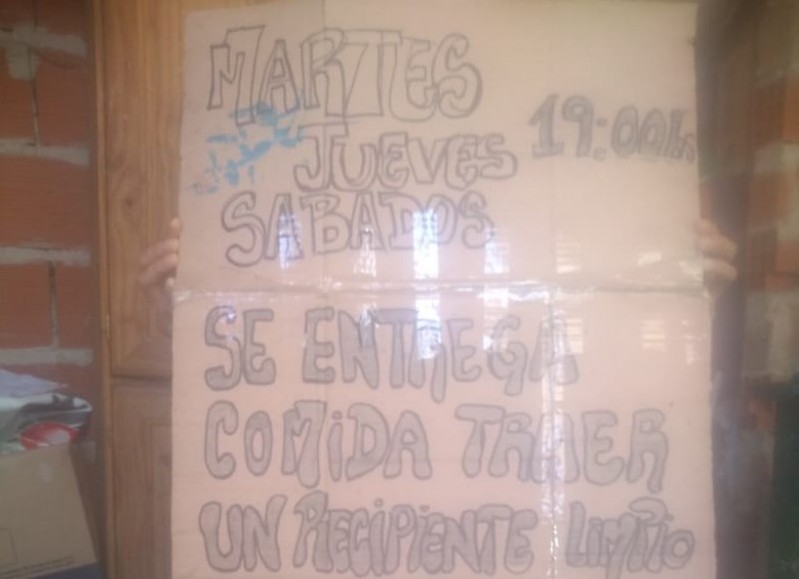 MARTES
JUEVES 19:00h.
SABADOS
SE ENTREGA
COMiDA TRAER
UN RECIPIENTE LIMPIO